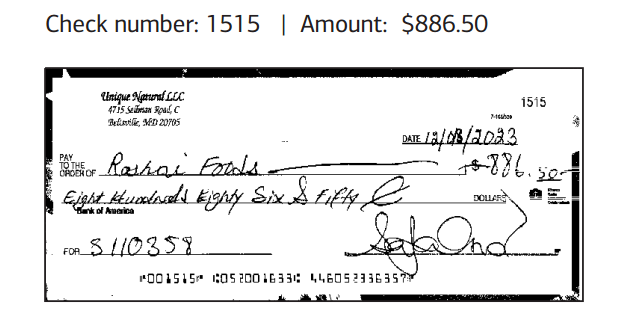 Check number: 1515 | Amount: $886.50
Unique Natural LLC
4715 Sellman Road, C
Beltsville, MD 20705
1515
DATE 12/08/2023
PAY TO THE ORDER OF Roshai Foods $ 886.50
Eight Hundreds Eighty Six & Fifty C DOLLARS
Bank of America
FOR S110358
⑈001515⑈ ⑆052001633⑆ 446052336357⑈